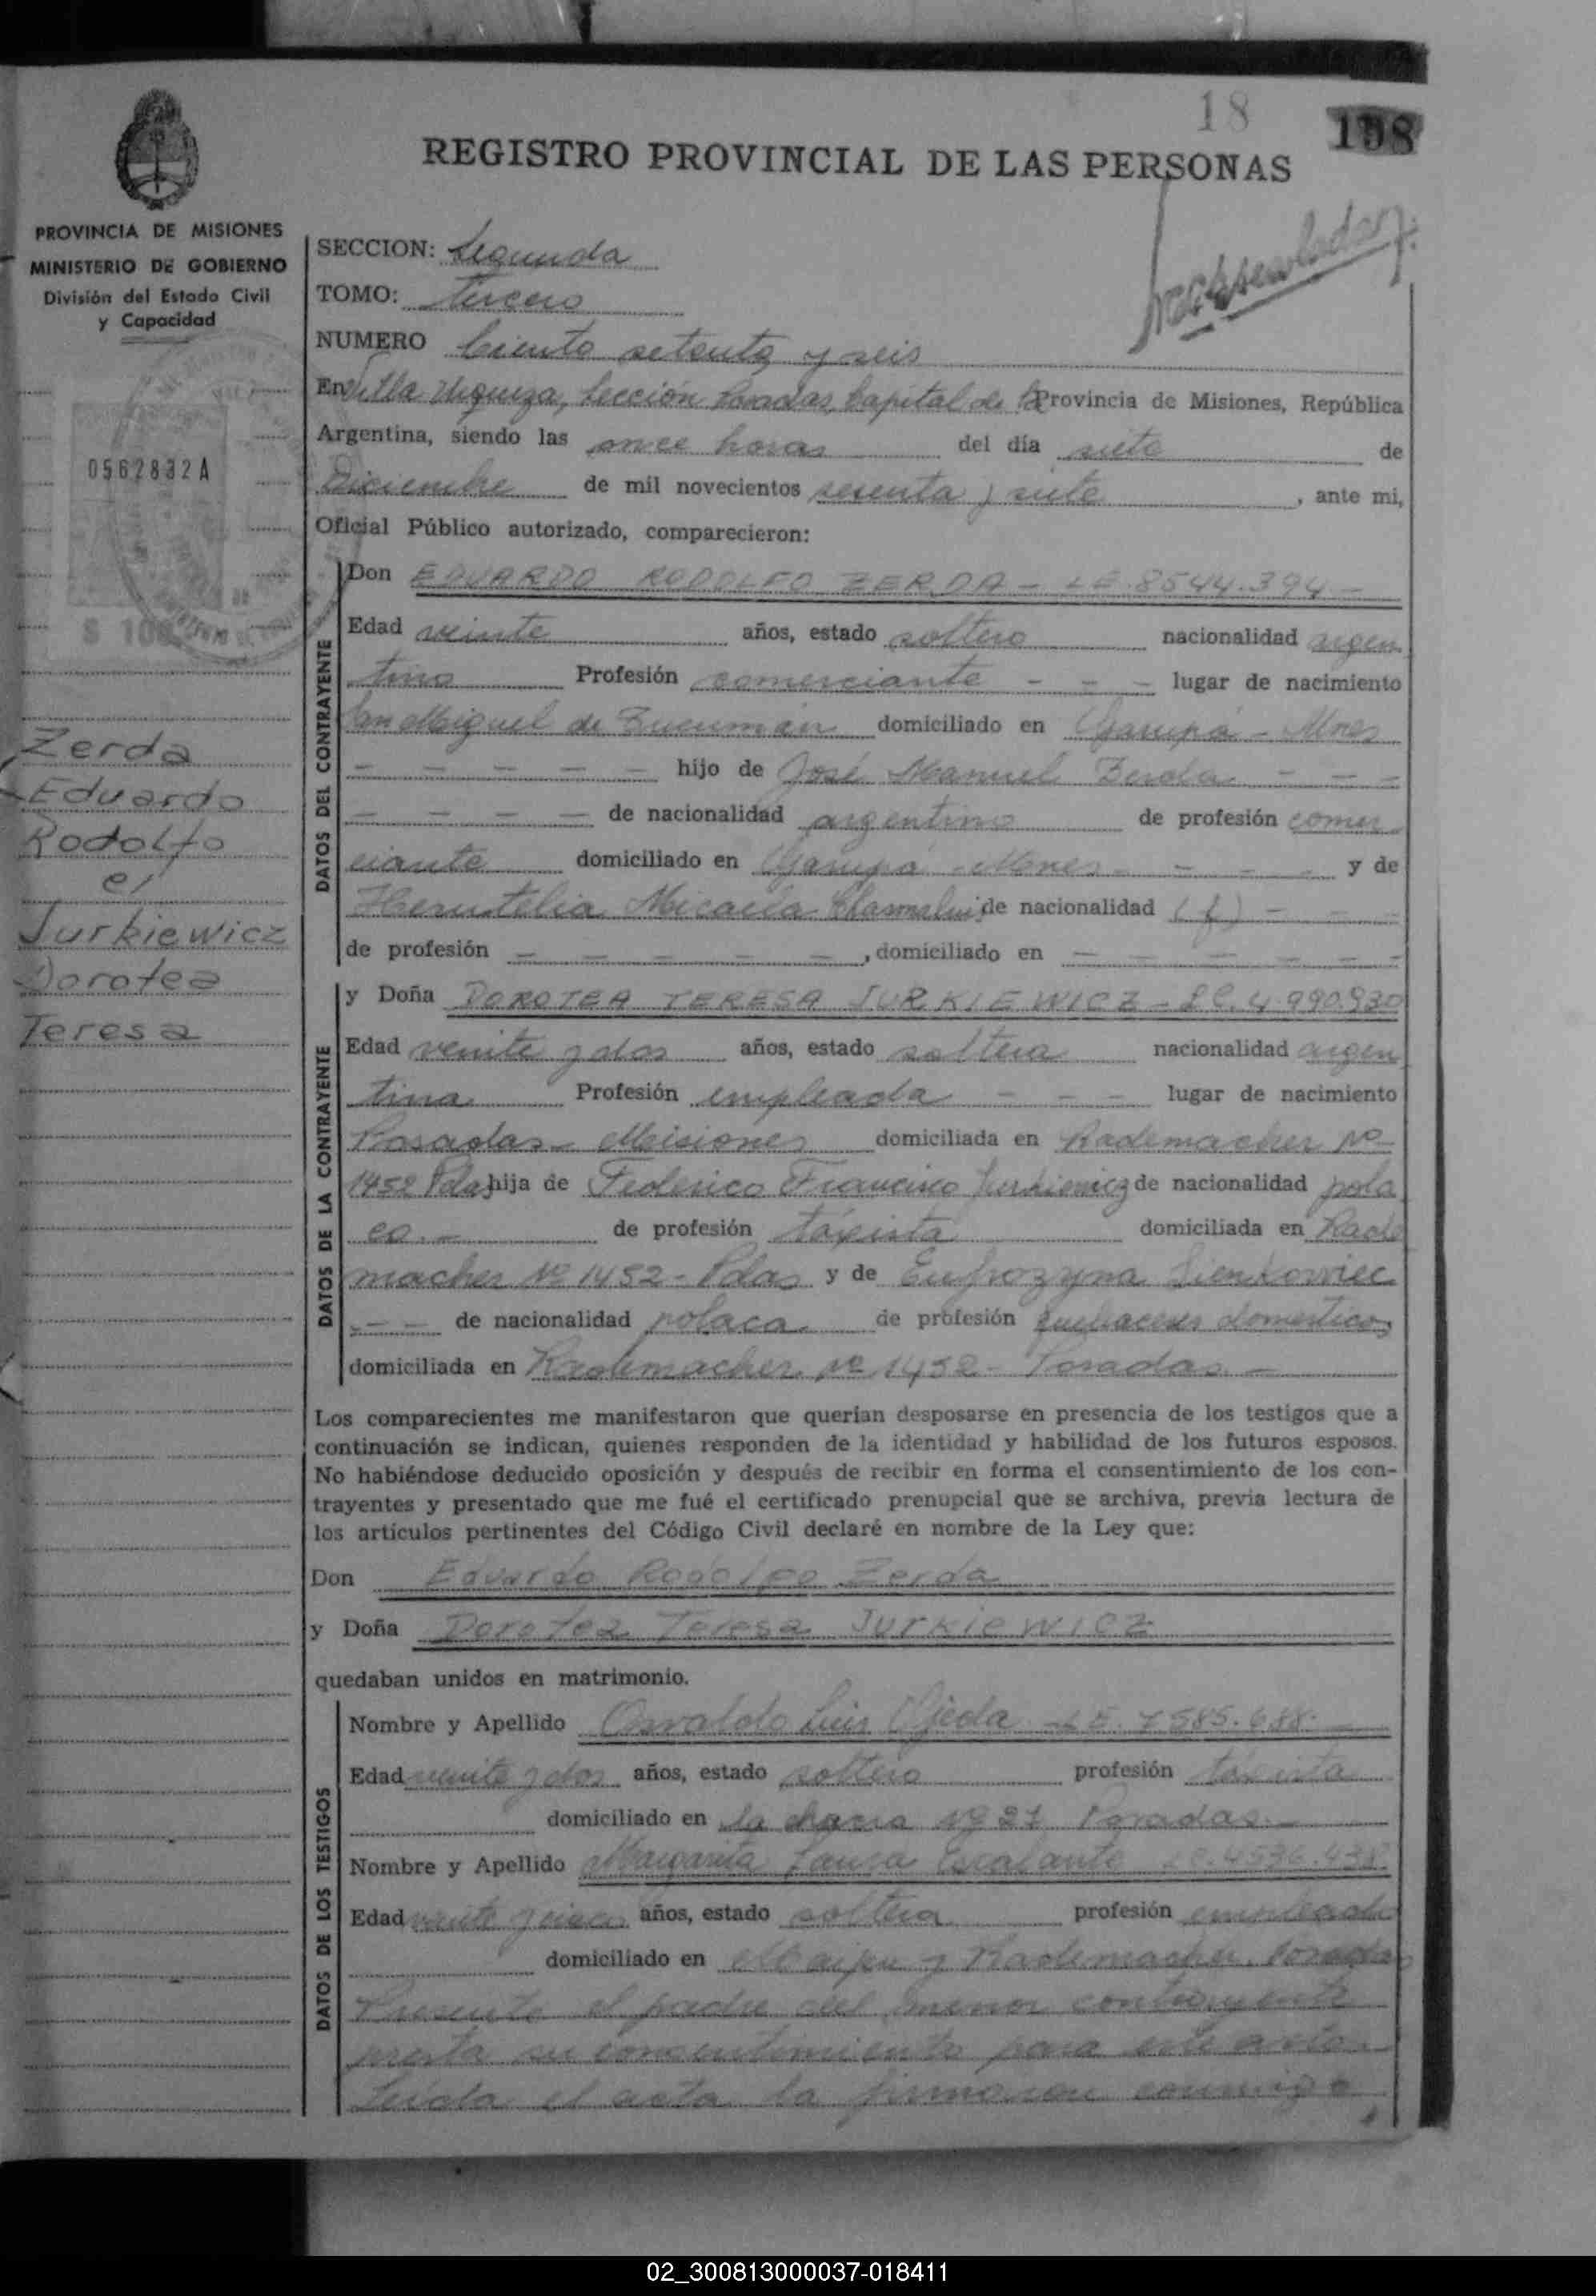 18
198
REGISTRO PROVINCIAL DE LAS PERSONAS
PROVINCIA DE MISIONES
MINISTERIO DE GOBIERNO
División del Estado Civil
y Capacidad
0562832A
$ 100
Zerda
Eduardo
Rodolfo
c/
Jurkiewicz
Dorotea
Teresa
SECCION: Segunda
TOMO: Tercero
NUMERO Ciento setenta y seis
En Villa Urquiza, Sección Posadas, Capital de la Provincia de Misiones, República
Argentina, siendo las once horas del día siete de
Diciembre de mil novecientos sesenta y siete, ante mi,
Oficial Público autorizado, comparecieron:
DATOS DEL CONTRAYENTE
Don EDUARDO RODOLFO ZERDA - LE 8544.394 -
Edad veinte años, estado soltero nacionalidad argen
tino Profesión comerciante - - - lugar de nacimiento
San Miguel de Tucumán domiciliado en Garupá - Mnes
- - - - - hijo de José Manuel Zerda - - -
- - - - de nacionalidad argentino de profesión comer
ciante domiciliado en Garupá - Mnes - - - - y de
Micaela de nacionalidad (f) - - -
de profesión - - - - -, domiciliado en - - - - - -
DATOS DE LA CONTRAYENTE
y Doña DOROTEA TERESA JURKIEWICZ - LC. 4.990.930
Edad veinte y dos años, estado soltera nacionalidad argen
tina Profesión empleada - - - lugar de nacimiento
Posadas - Misiones domiciliada en Rademacher Nº
1452 Pdas hija de Federico Francisco Jurkiewicz de nacionalidad pola
co.- de profesión taxista domiciliada en Rade
macher Nº 1452 - Pdas y de Eufrozyna Sienkowiec
- - de nacionalidad polaca de profesión quehaceres domesticos
domiciliada en Rademacher Nº 1452 - Posadas. -
Los comparecientes me manifestaron que querían desposarse en presencia de los testigos que a
continuación se indican, quienes responden de la identidad y habilidad de los futuros esposos.
No habiéndose deducido oposición y después de recibir en forma el consentimiento de los con-
trayentes y presentado que me fué el certificado prenupcial que se archiva, previa lectura de
los artículos pertinentes del Código Civil declaré en nombre de la Ley que:
Don Eduardo Rodolfo Zerda
y Doña Dorotea Teresa Jurkiewicz
quedaban unidos en matrimonio.
DATOS DE LOS TESTIGOS
Nombre y Apellido Osvaldo Luis Ojeda - LE. 7585.688. -
Edad veinte y dos años, estado soltero profesión taxista
domiciliado en la chacra Nº 27 Posadas. -
Nombre y Apellido Margarita Laura Escalante LC. 4536.438
Edad veinte y años, estado soltera profesión empleada
domiciliado en Maipu y Rademacher. Posadas
Presente el padre del menor contrayente
presta su consentimiento para este acto.
Leida el acta la firmaron conmigo
02_300813000037-018411